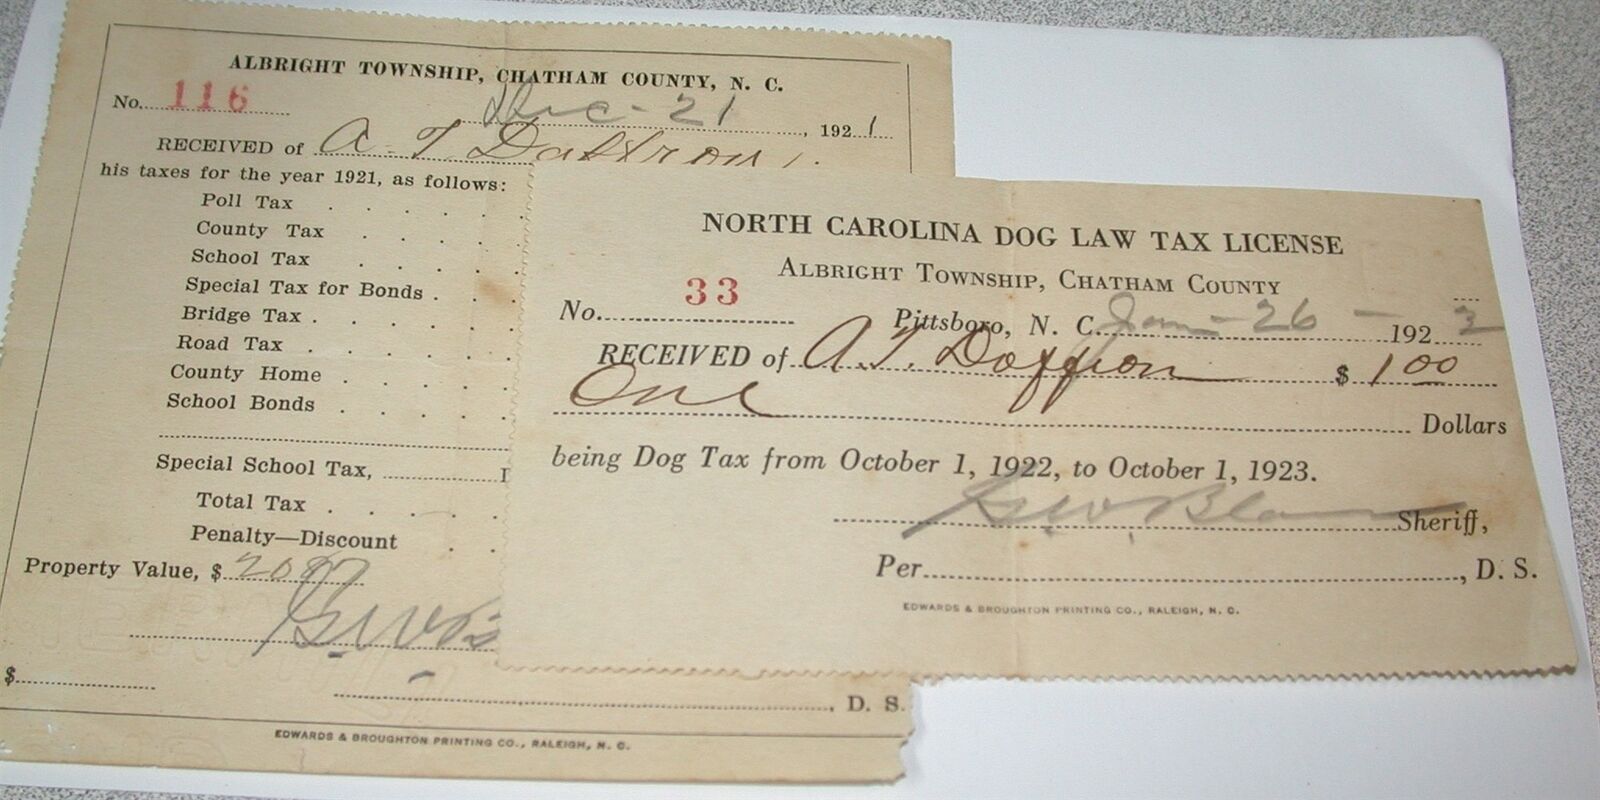 ALBRIGHT TOWNSHIP, CHATHAM COUNTY, N. C.
No. 116
Dec - 21, 1921
RECEIVED of A. T.
his taxes for the year 1921, as follows:
Poll Tax
County Tax
School Tax
Special Tax for Bonds
Bridge Tax
Road Tax
County Home
School Bonds
Special School Tax,
Total Tax
Penalty—Discount
Property Value, $
$
D. S.
EDWARDS & BROUGHTON PRINTING CO., RALEIGH, N. C.
NORTH CAROLINA DOG LAW TAX LICENSE
ALBRIGHT TOWNSHIP, CHATHAM COUNTY
No. 33
Pittsboro, N. C. Jan - 26 - 1923
RECEIVED of A. T. $ 1 00
One Dollars
being Dog Tax from October 1, 1922, to October 1, 1923.
G. W. Sheriff,
Per, D. S.
EDWARDS & BROUGHTON PRINTING CO., RALEIGH, N. C.